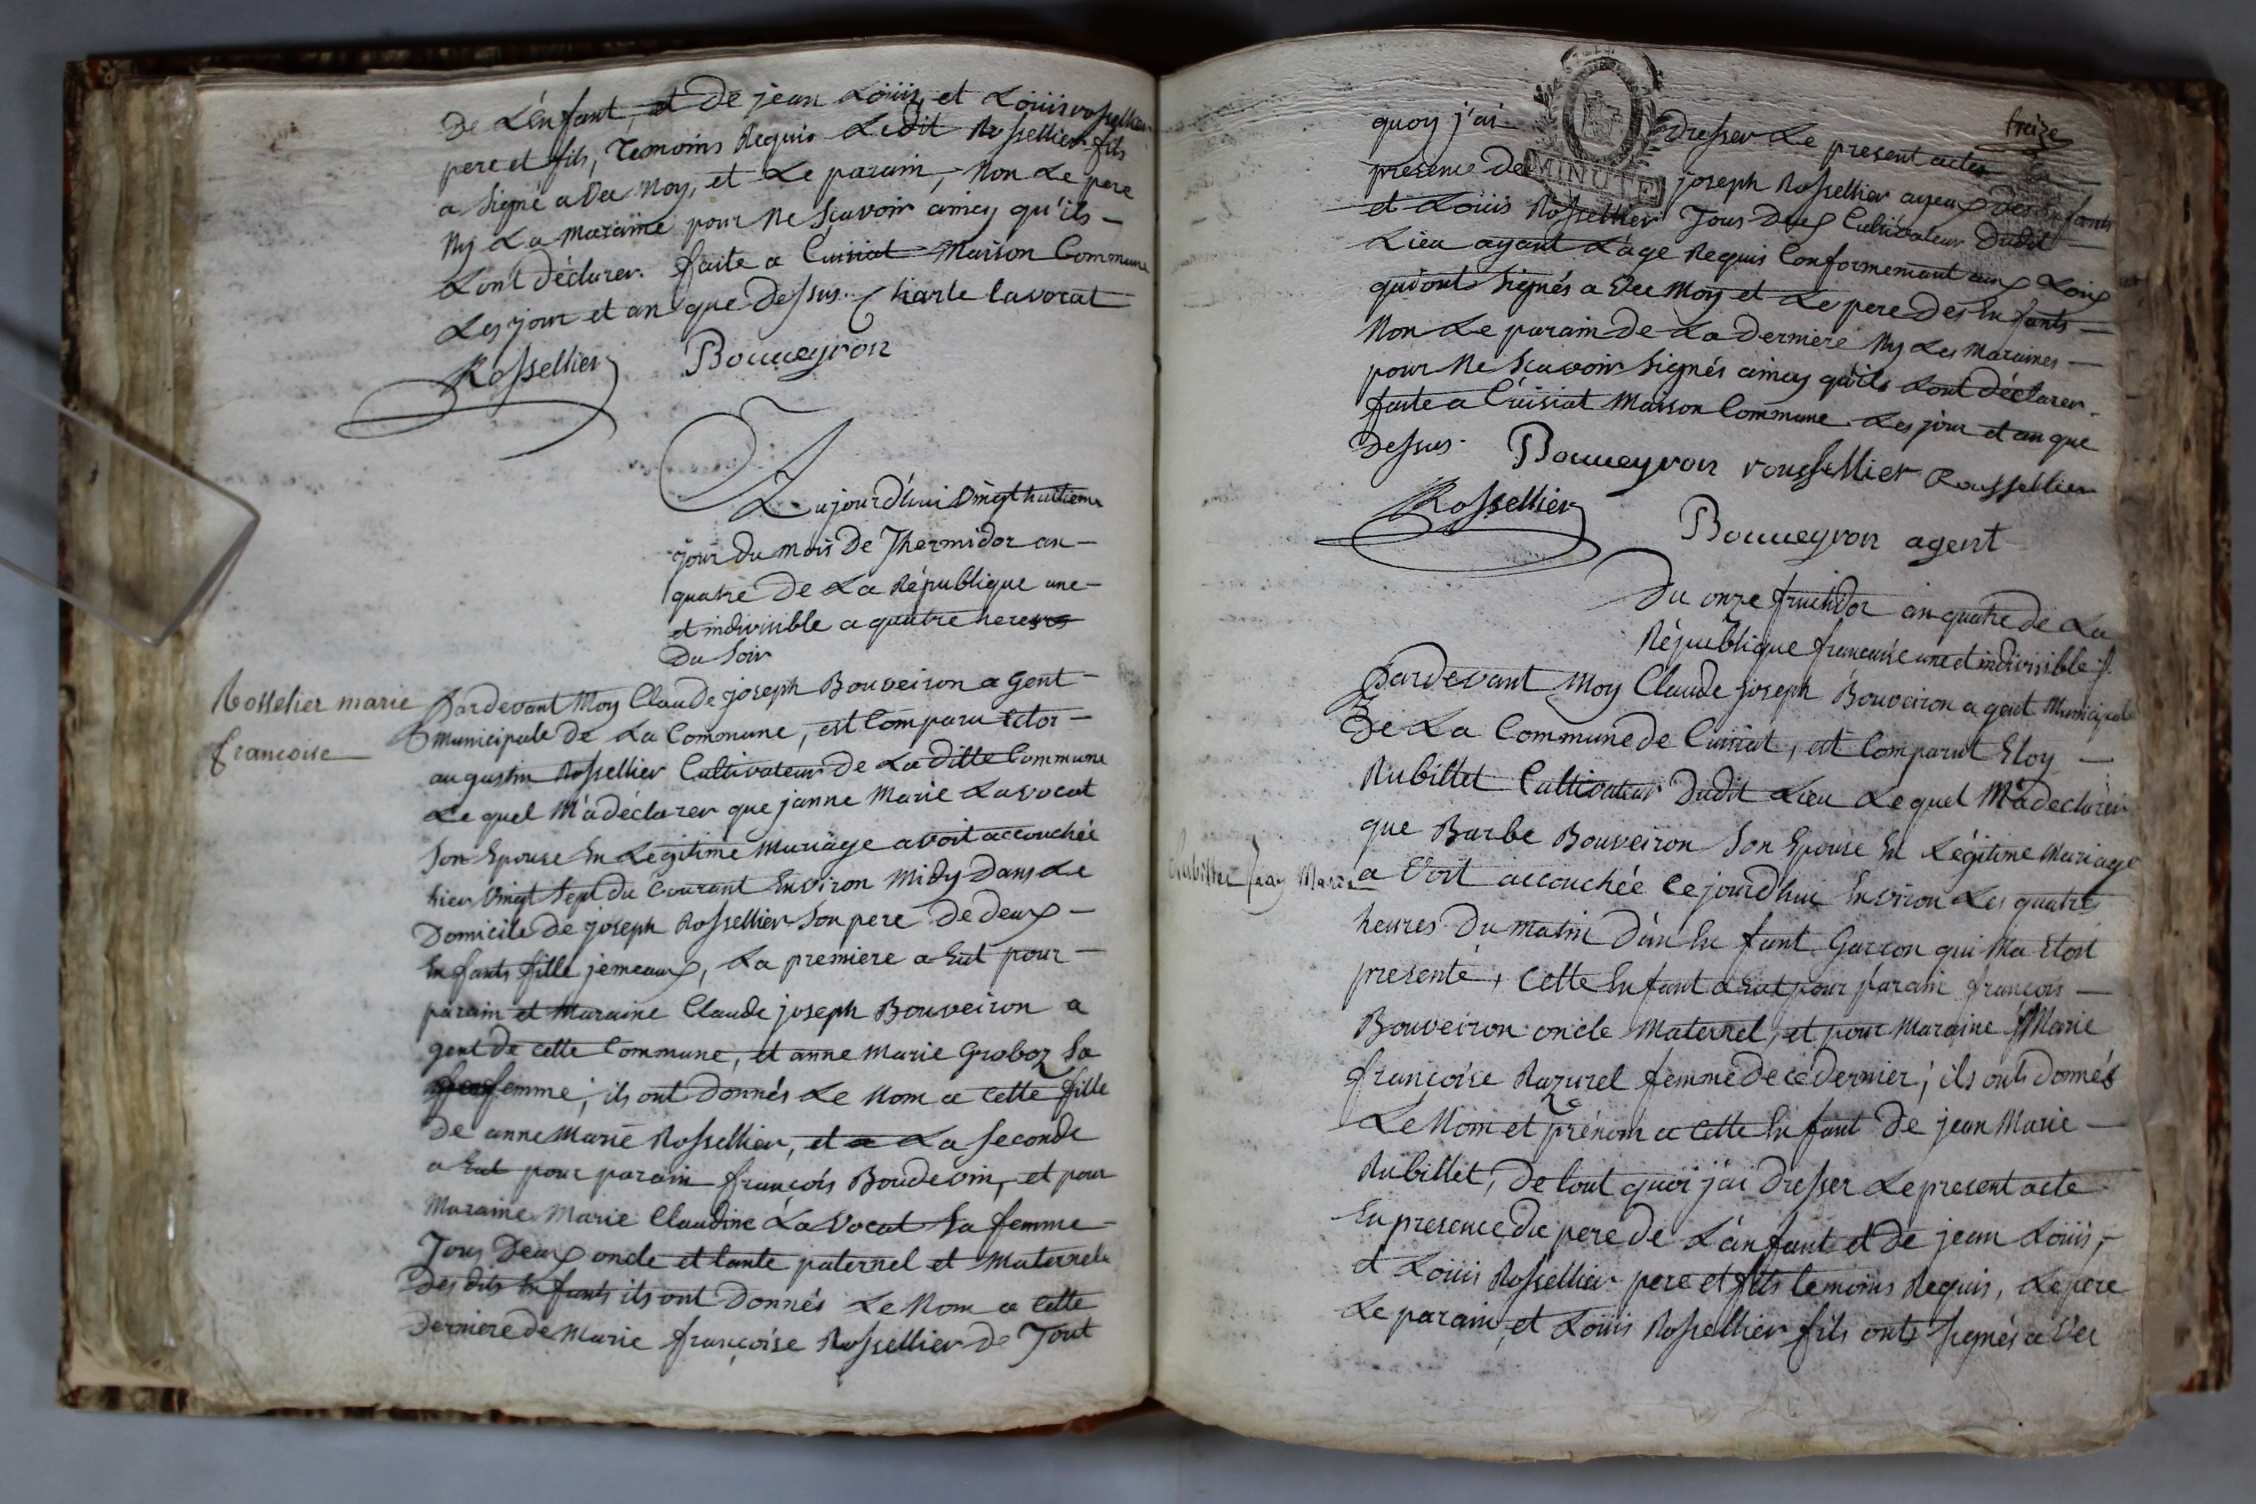 De L'enfant, et De jean Loüis, et Loüis rossellier
pere et fils, Temoins Requis Ledit Rossellier fils
a signé a Vec Moy, et Le parain, Non Le pere
Ny La maraine pour Ne Scavoir aincy qu'ils -
Lont Déclarer. faite a Cuisiat Maison Commune
Les jour et an que Dessus. Charle lavocat
Rossellier Bouueyron
Aujourd'hui Vingt huitieme
jour Du Mois De Thermidor an -
quatre De La République une -
et indivisible a quatre heres
Du Soir
Rosselier marie
francoise
Pardevant Moy Claude joseph Bouveiron a Gent -
Municipale De La Commune, est Comparu Lelor -
augustin Rossellier Cultivateur De La ditte Commune
Le quel M'a déclarer que janne Marie Lavocat
Son Epouse En Légitime Mariage avoit accouchée
hier Vingt Sept du Courant Environ Midy Dans Le
Domicile De joseph Rossellier Son pere De deux -
Enfants fille jemeaux, La premiere a Eut pour -
parain et Maraine Claude joseph Bouveiron a
gent De cette Commune, et anne Marie Groboz Sa
femme; ils ont Donnés Le Nom a Cette fille
De anne Marie Rossellier, et a La Seconde
a Eut pour parain francois Boudevin, et pour
Maraine Marie Claudine La Vocat Sa femme -
Tous Deux oncle et tante paternel et Maternele
Des dits Enfants ils ont Donnés Le Nom a Cette
Derniere De Marie françoise Rossellier De Tout
treize
MINUTE
quoy j'ai Dresser Le present acte
presence De joseph Rossellier ayeux Des Enfants
et Loüis Rossellier Tous Deux Cultivateur Dudit
Lieu ayant L'age Requis Conformement aux Loix
qui ont Signés a Vec Moy et Le pere Des Enfants -
Non Le parain De La Derniere Ny Les Maraines -
pour Ne Scavoir Signés aincy qu'ils Lont Déclarer.
faite a Cuisiat Maison Commune Les jour et an que
Dessus. Bouueyron rousselier Roussellier
Rossellier Bouueyron agent
Du onze fructidor an quatre De La
République francaise une et indivisible
Pardevant Moy Claude joseph Bouveiron a gent Municipale
De La Commune de Cuisiat, est Comparut Eloy -
Rubillet Cultivateur Dudit Lieu Le quel M'a declarer
que Barbe Bouveiron Son Epouse En Légitime Mariage
Rubillet jean Marie
a Voit accouchée Ce jourd'hui Environ Les quatres
heures Du Matin D'un En fant Garcon qui Ma Etoit
presenté, Cette Enfant a Eut pour parain francois -
Bouveiron oncle Maternel, et pour Maraine Marie
françoise Razurel femme De ce Dernier; ils onts Donnés
Le Nom et prénom a Cette Enfant De jean Marie -
Rubillet, De tout quoi j'ai Dresser Le present acte
En presence Du pere De L'anfant et de jean Loüis, -
et Loüis Rossellier pere et fils temoins Requis, Le pere
Le parain, et Loüis Rossellier fils onts Signés a Vec